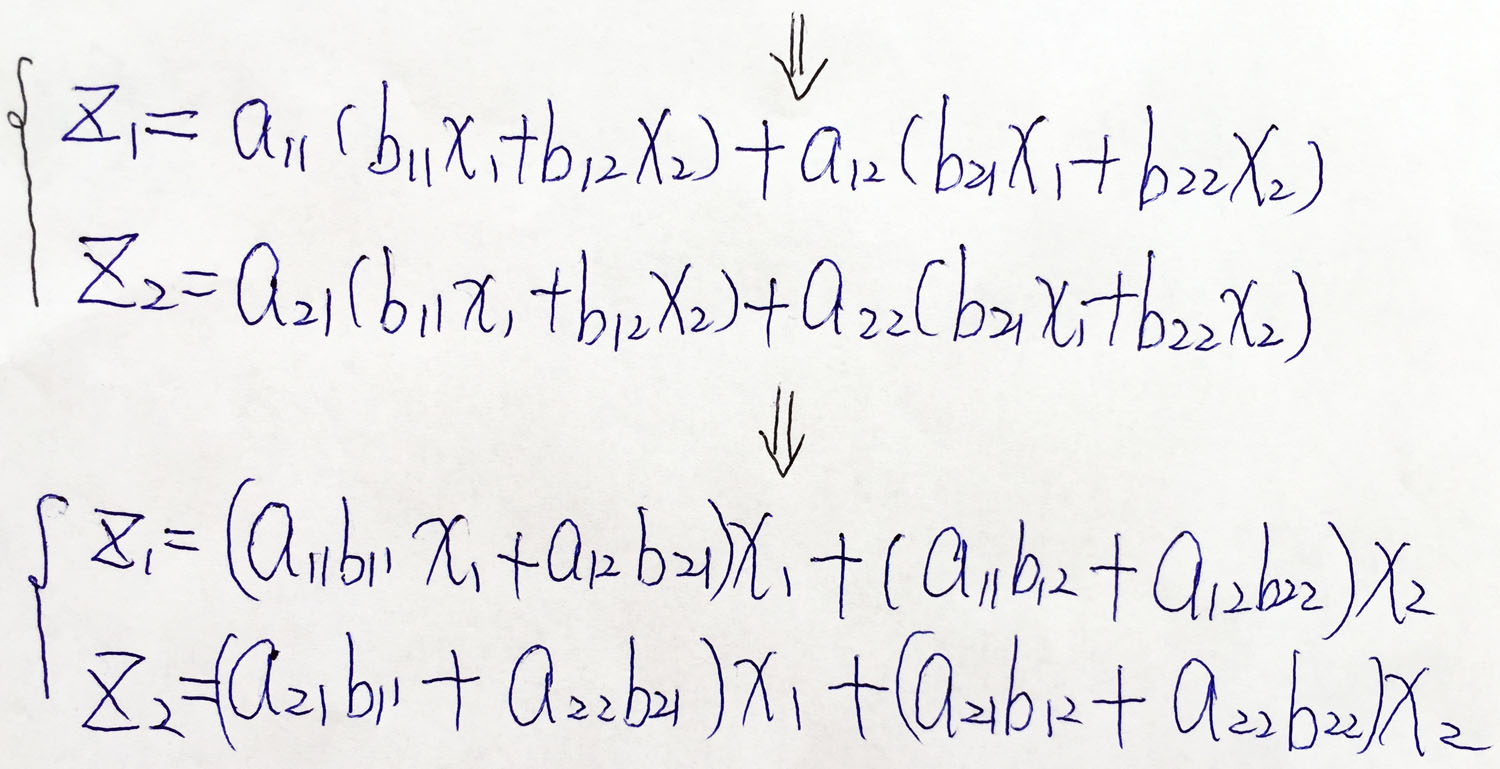 ⇓
z₁ = a₁₁(b₁₁x₁+b₁₂x₂)+a₁₂(b₂₁x₁+b₂₂x₂)
z₂ = a₂₁(b₁₁x₁+b₁₂x₂)+a₂₂(b₂₁x₁+b₂₂x₂)
⇓
z₁ = (a₁₁b₁₁x₁+a₁₂b₂₁)x₁+(a₁₁b₁₂+a₁₂b₂₂)x₂
z₂ = (a₂₁b₁₁+a₂₂b₂₁)x₁+(a₂₁b₁₂+a₂₂b₂₂)x₂